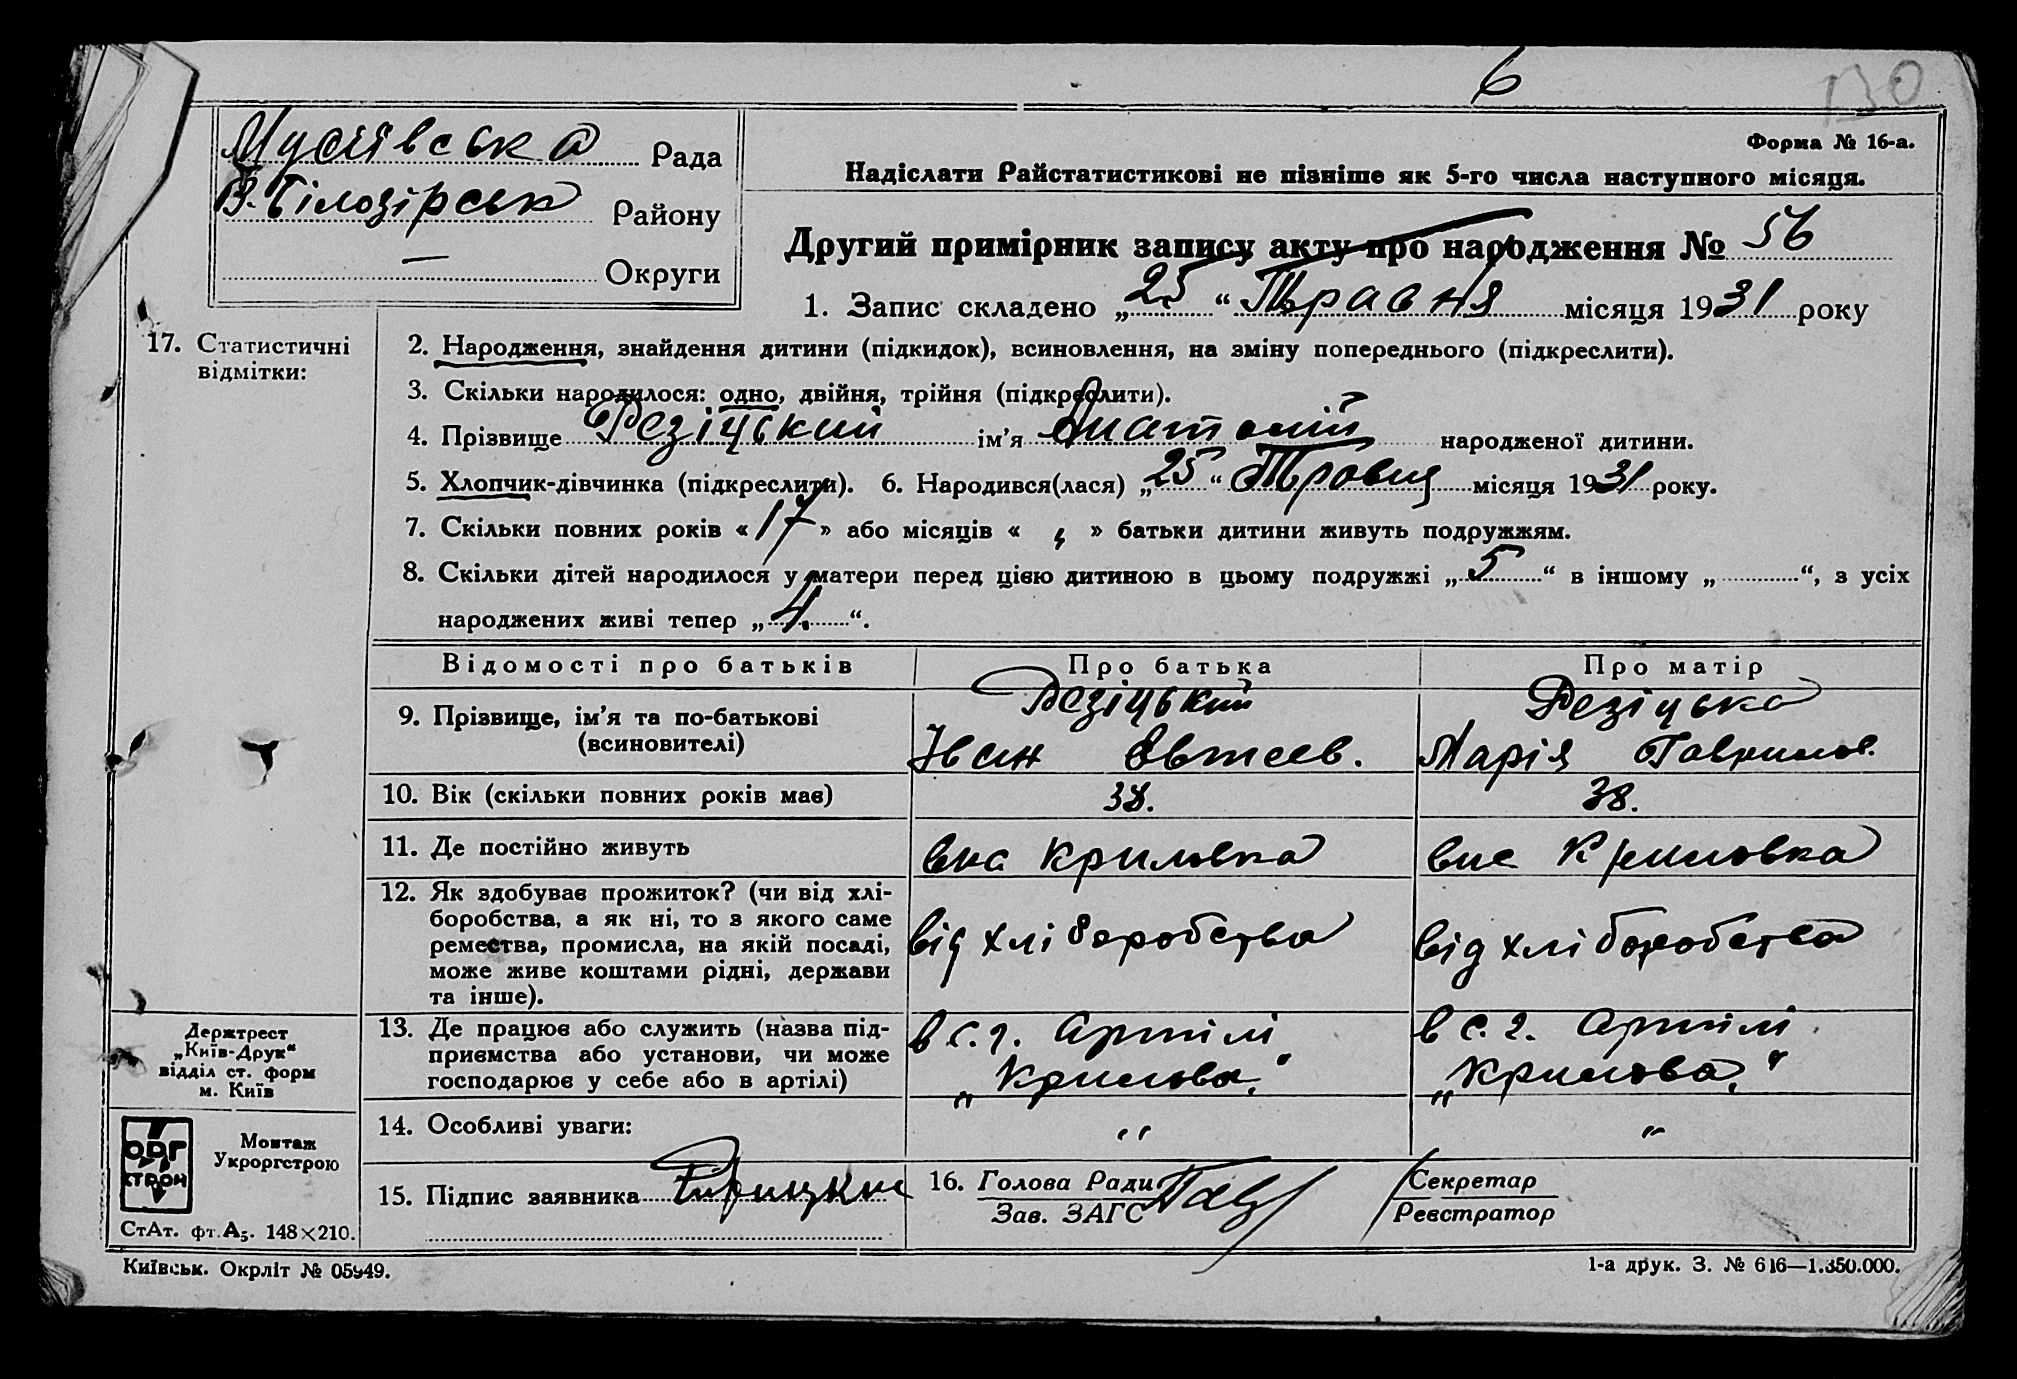 6
130
Мусіївська Рада
В. Білозірськ Району
— Округи
Форма № 16-а.
Надіслати Райстатистикові не пізніше як 5-го числа наступного місяця.
Другий примірник запису акту про народження № 56
1. Запис складено „25“ Травня місяця 1931 року
17. Статистичні
відмітки:
2. Народження, знайдення дитини (підкидок), всиновлення, на зміну попереднього (підкреслити).
3. Скільки народилося: одно, двійня, трійня (підкреслити).
4. Прізвище Резіцький ім’я Анатолій народженої дитини.
5. Хлопчик-дівчинка (підкреслити). 6. Народився(лася) „25“ Травня місяця 1931 року.
7. Скільки повних років «17» або місяців « » батьки дитини живуть подружжям.
8. Скільки дітей народилося у матери перед цією дитиною в цьому подружжі „5“ в іншому „ “, з усіх
народжених живі тепер „4.“.
Відомості про батьків Про батька Про матір
9. Прізвище, ім’я та по-батькові
(всиновителі)
Резіцький
Іван Овтсев.
Резіцька
Марія Гаврилов.
10. Вік (скільки повних років має) 38. 38.
11. Де постійно живуть вис Крилівка вис Криловка
12. Як здобуває прожиток? (чи від хлі-
боробства, а як ні, то з якого саме
ремества, промисла, на якій посаді,
може живе коштами рідні, держави
та інше).
від хліборобства
від хліборобства
13. Де працює або служить (назва під-
приємства або установи, чи може
господарює у себе або в артілі)
в с. г. Артілі
„Крилова“
в с. г. Артілі
„Крилова“
14. Особливі уваги: " "
15. Підпис заявника
16. Голова Ради
Зав. ЗАГС
Секретар
Реєстратор
Держтрест
„Київ-Друк“
відділ ст. форм
м. Київ
ОРГ
СТРОЙ
Монтаж
Укроргстрою
СтАт. фт. А5. 148×210.
Київськ. Окрліт № 05949.
1-а друк. З. № 616—1.350.000.